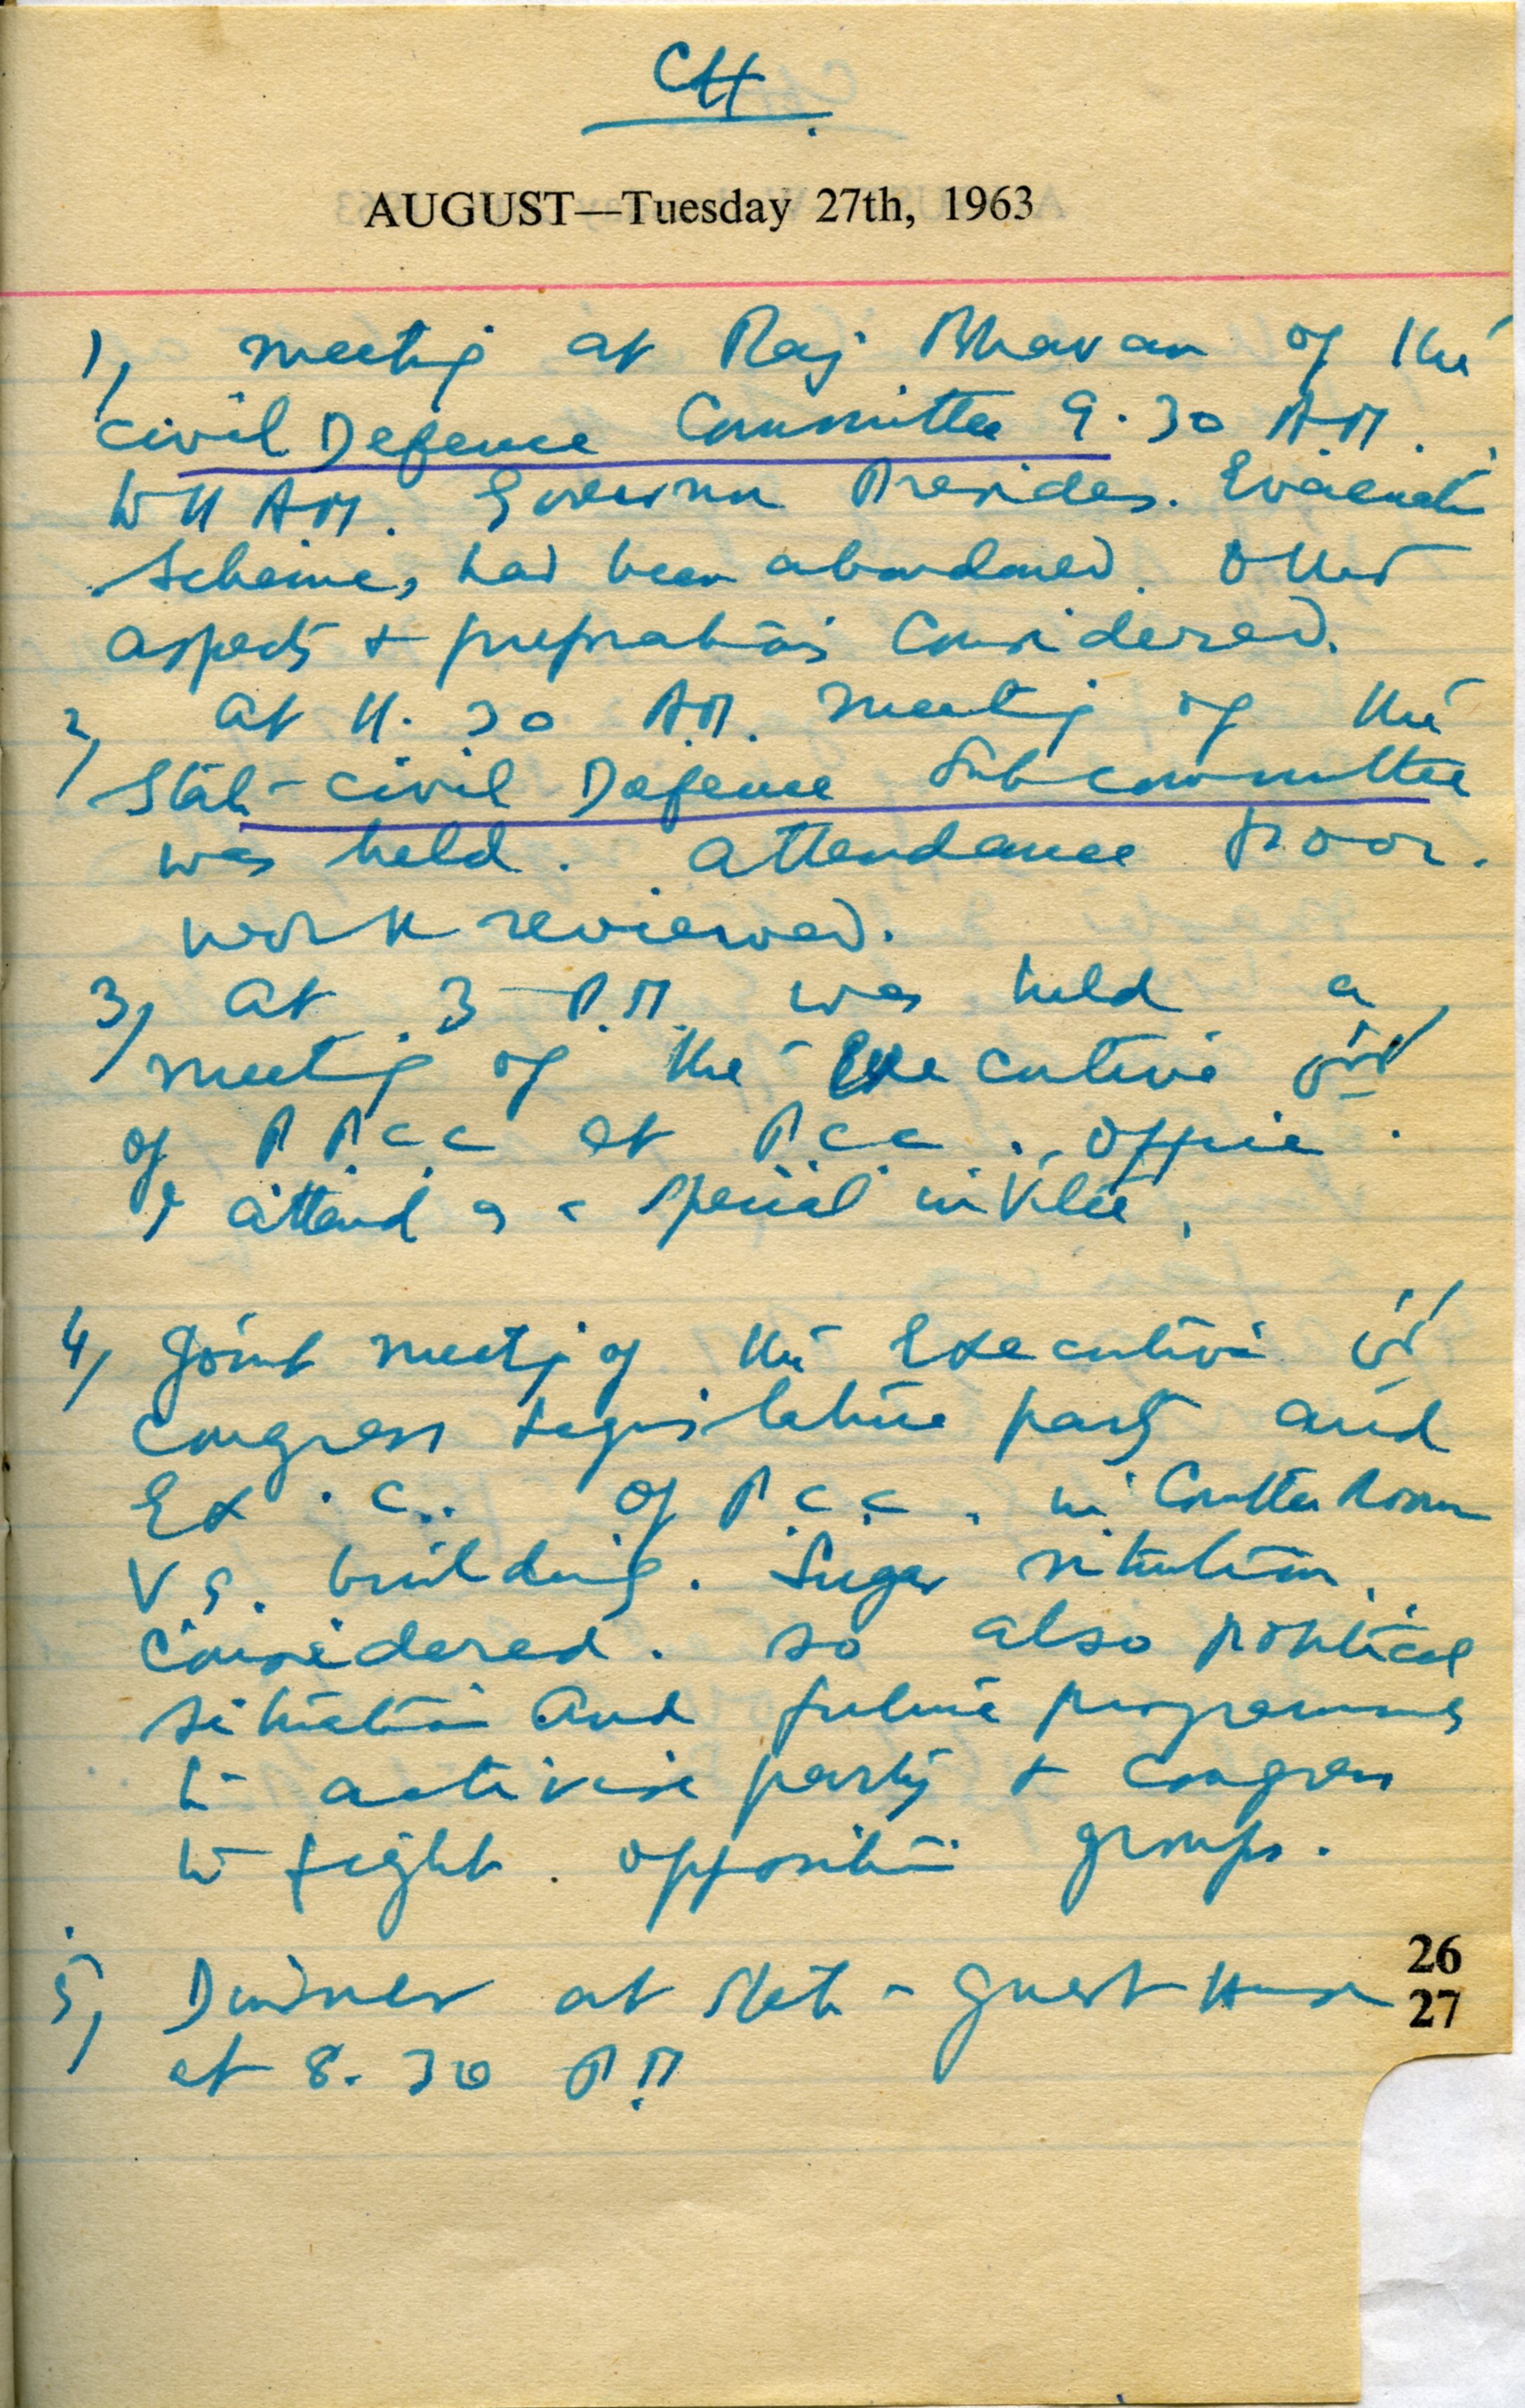 CH.
AUGUST—Tuesday 27th, 1963
1, meeting at Raj Bhavan of the
Civil Defence Committee 9.30 A.M.
to 11 A.M. Governor Presides. Evacuation
scheme, had been abandoned. Other
aspects + preprations Considered.
2, at 11.30 A.M. meeting of the
State-Civil Defence Subcommittee
was held. attendance poor.
work reviewed.
3, at 3 P.M. was held a
meeting of the Executive
of P.C.C at P.C.C. Office.
I attend as a special invitee.
4, Joint meeting of the Executive of
Congress Legislature party and
Ex.C.. of P.C.C. in Comttee Room
V.S. building. Sugar situation.
Considered. so also political
situation and future programmes
to activise party + Congress
to fight. opposition groups.
5, Dinner at State-Guest House
at 8.30 P.M
26
27